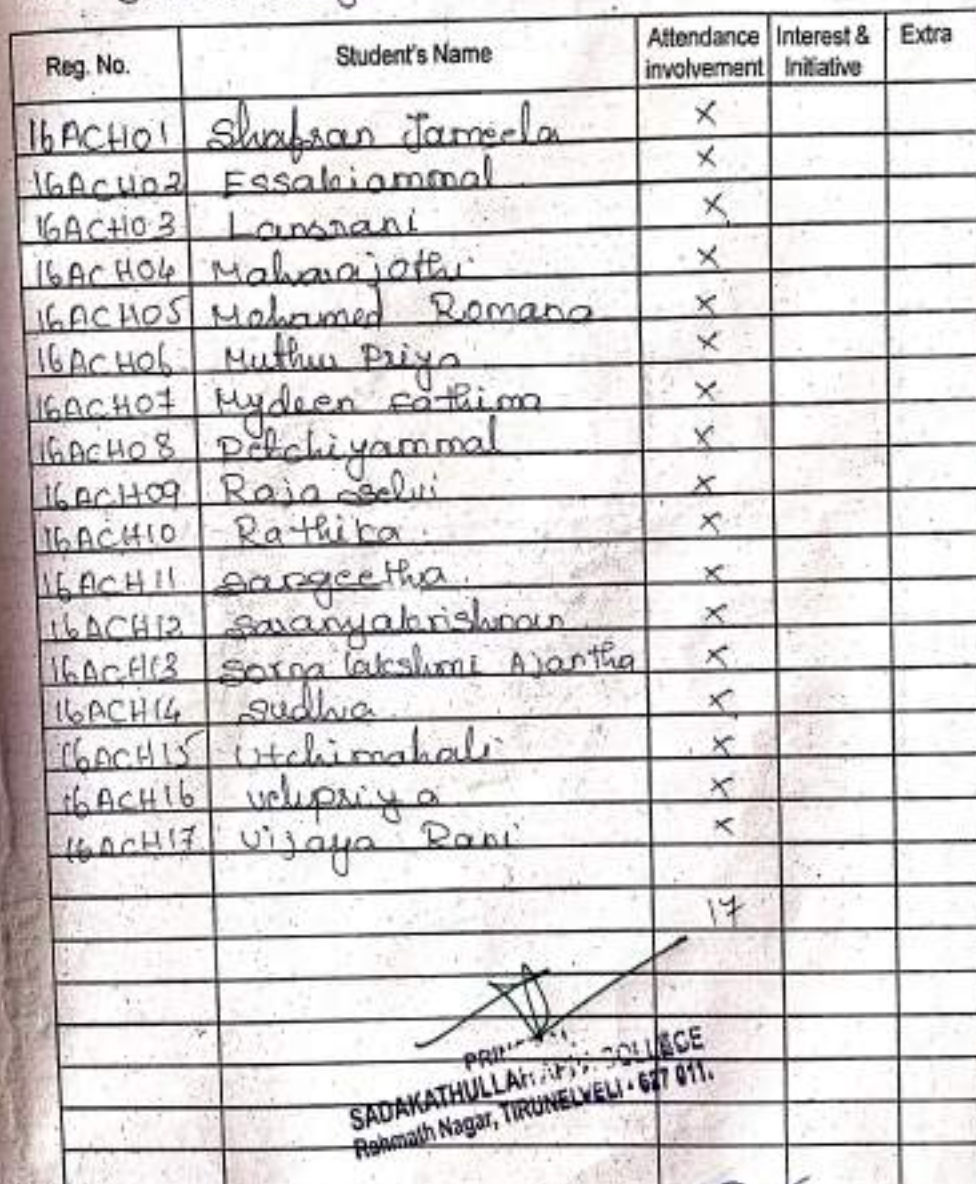 Reg. No. Student's Name Attendance involvement Interest & Initiative Extra
16ACH01 Shafran Jameela X
16ACH02 Essakiammal X
16ACH03 Lansrani X
16ACH04 Maharajothi X
16ACH05 Mohamed Romana X
16ACH06 Muthu Priya X
16ACH07 Mydeen Fathima X
16ACH08 Petchiyammal X
16ACH09 Raja selvi X
16ACH10 Rathika X
16ACH11 Sangeetha X
16ACH12 Saranyakrishnan X
16ACH13 Sorna lakshmi Ajantha X
16ACH14 Sudha X
16ACH15 Utchimahali X
16ACH16 Velupriya X
16ACH17 Vijaya Rani X
17
COLLEGE
SADAKATHULLAH
Rahmath Nagar, TIRUNELVELI - 627 011.